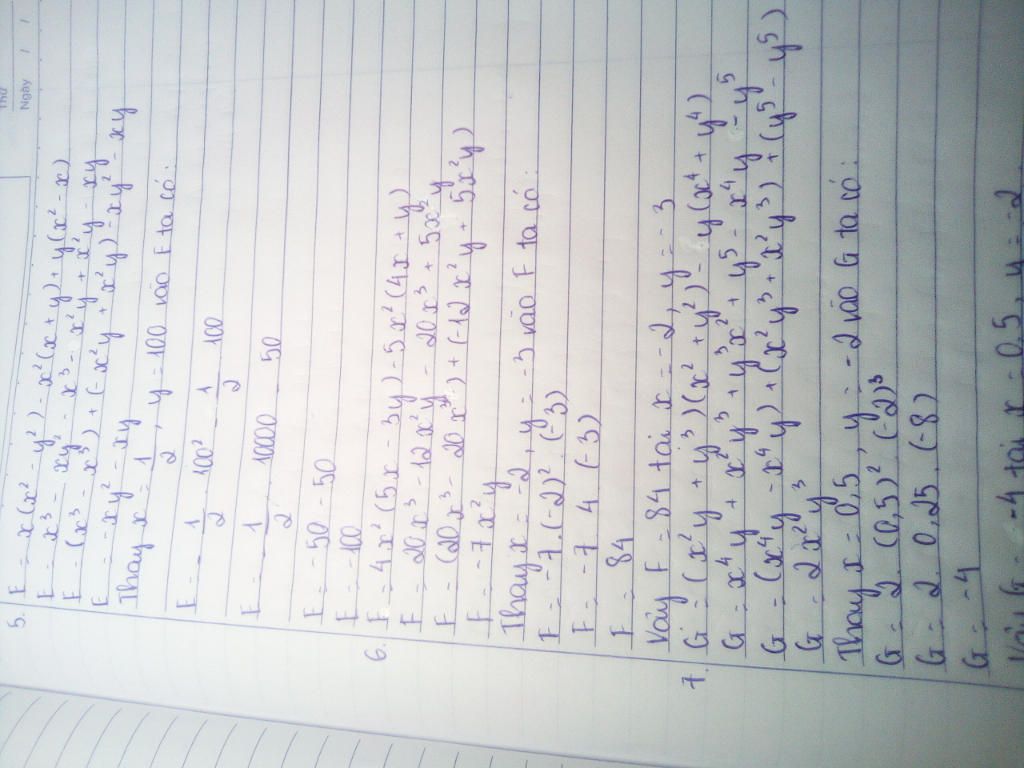 Thứ
Ngày / /
5. E = x(x² - y²) - x²(x + y) + y(x² - x)
E = x³ - xy² - x³ - x²y + x²y - xy
E = (x³ - x³) + (-x²y + x²y) - xy² - xy
E = -xy² - xy
Thay x = 1/2, y = 100 vào E ta có:
E = - 1/2 . 100² - 1/2 . 100
E = - 1/2 . 10000 - 50
E = - 50 - 50
E = - 100
6. F = 4x²(5x - 3y) - 5x²(4x + y)
F = 20x³ - 12x²y - 20x³ + 5x²y
F = (20x³ - 20x³) + (-12x²y + 5x²y)
F = -7x²y
Thay x = -2, y = -3 vào F ta có:
F = -7.(-2)².(-3)
F = -7 . 4 . (-3)
F = 84
Vậy F = 84 tại x = -2, y = -3
7. G = (x²y + y³)(x² + y²) - y(x⁴ + y⁴)
G = x⁴y + x²y³ + y³x² + y⁵ - x⁴y - y⁵
G = (x⁴y - x⁴y) + (x²y³ + x²y³) + (y⁵ - y⁵)
G = 2x²y³
Thay x = 0,5, y = -2 vào G ta có:
G = 2.(0,5)².(-2)³
G = 2 . 0,25 . (-8)
G = -4
Vậy G = -4 tại x = 0,5, y = -2